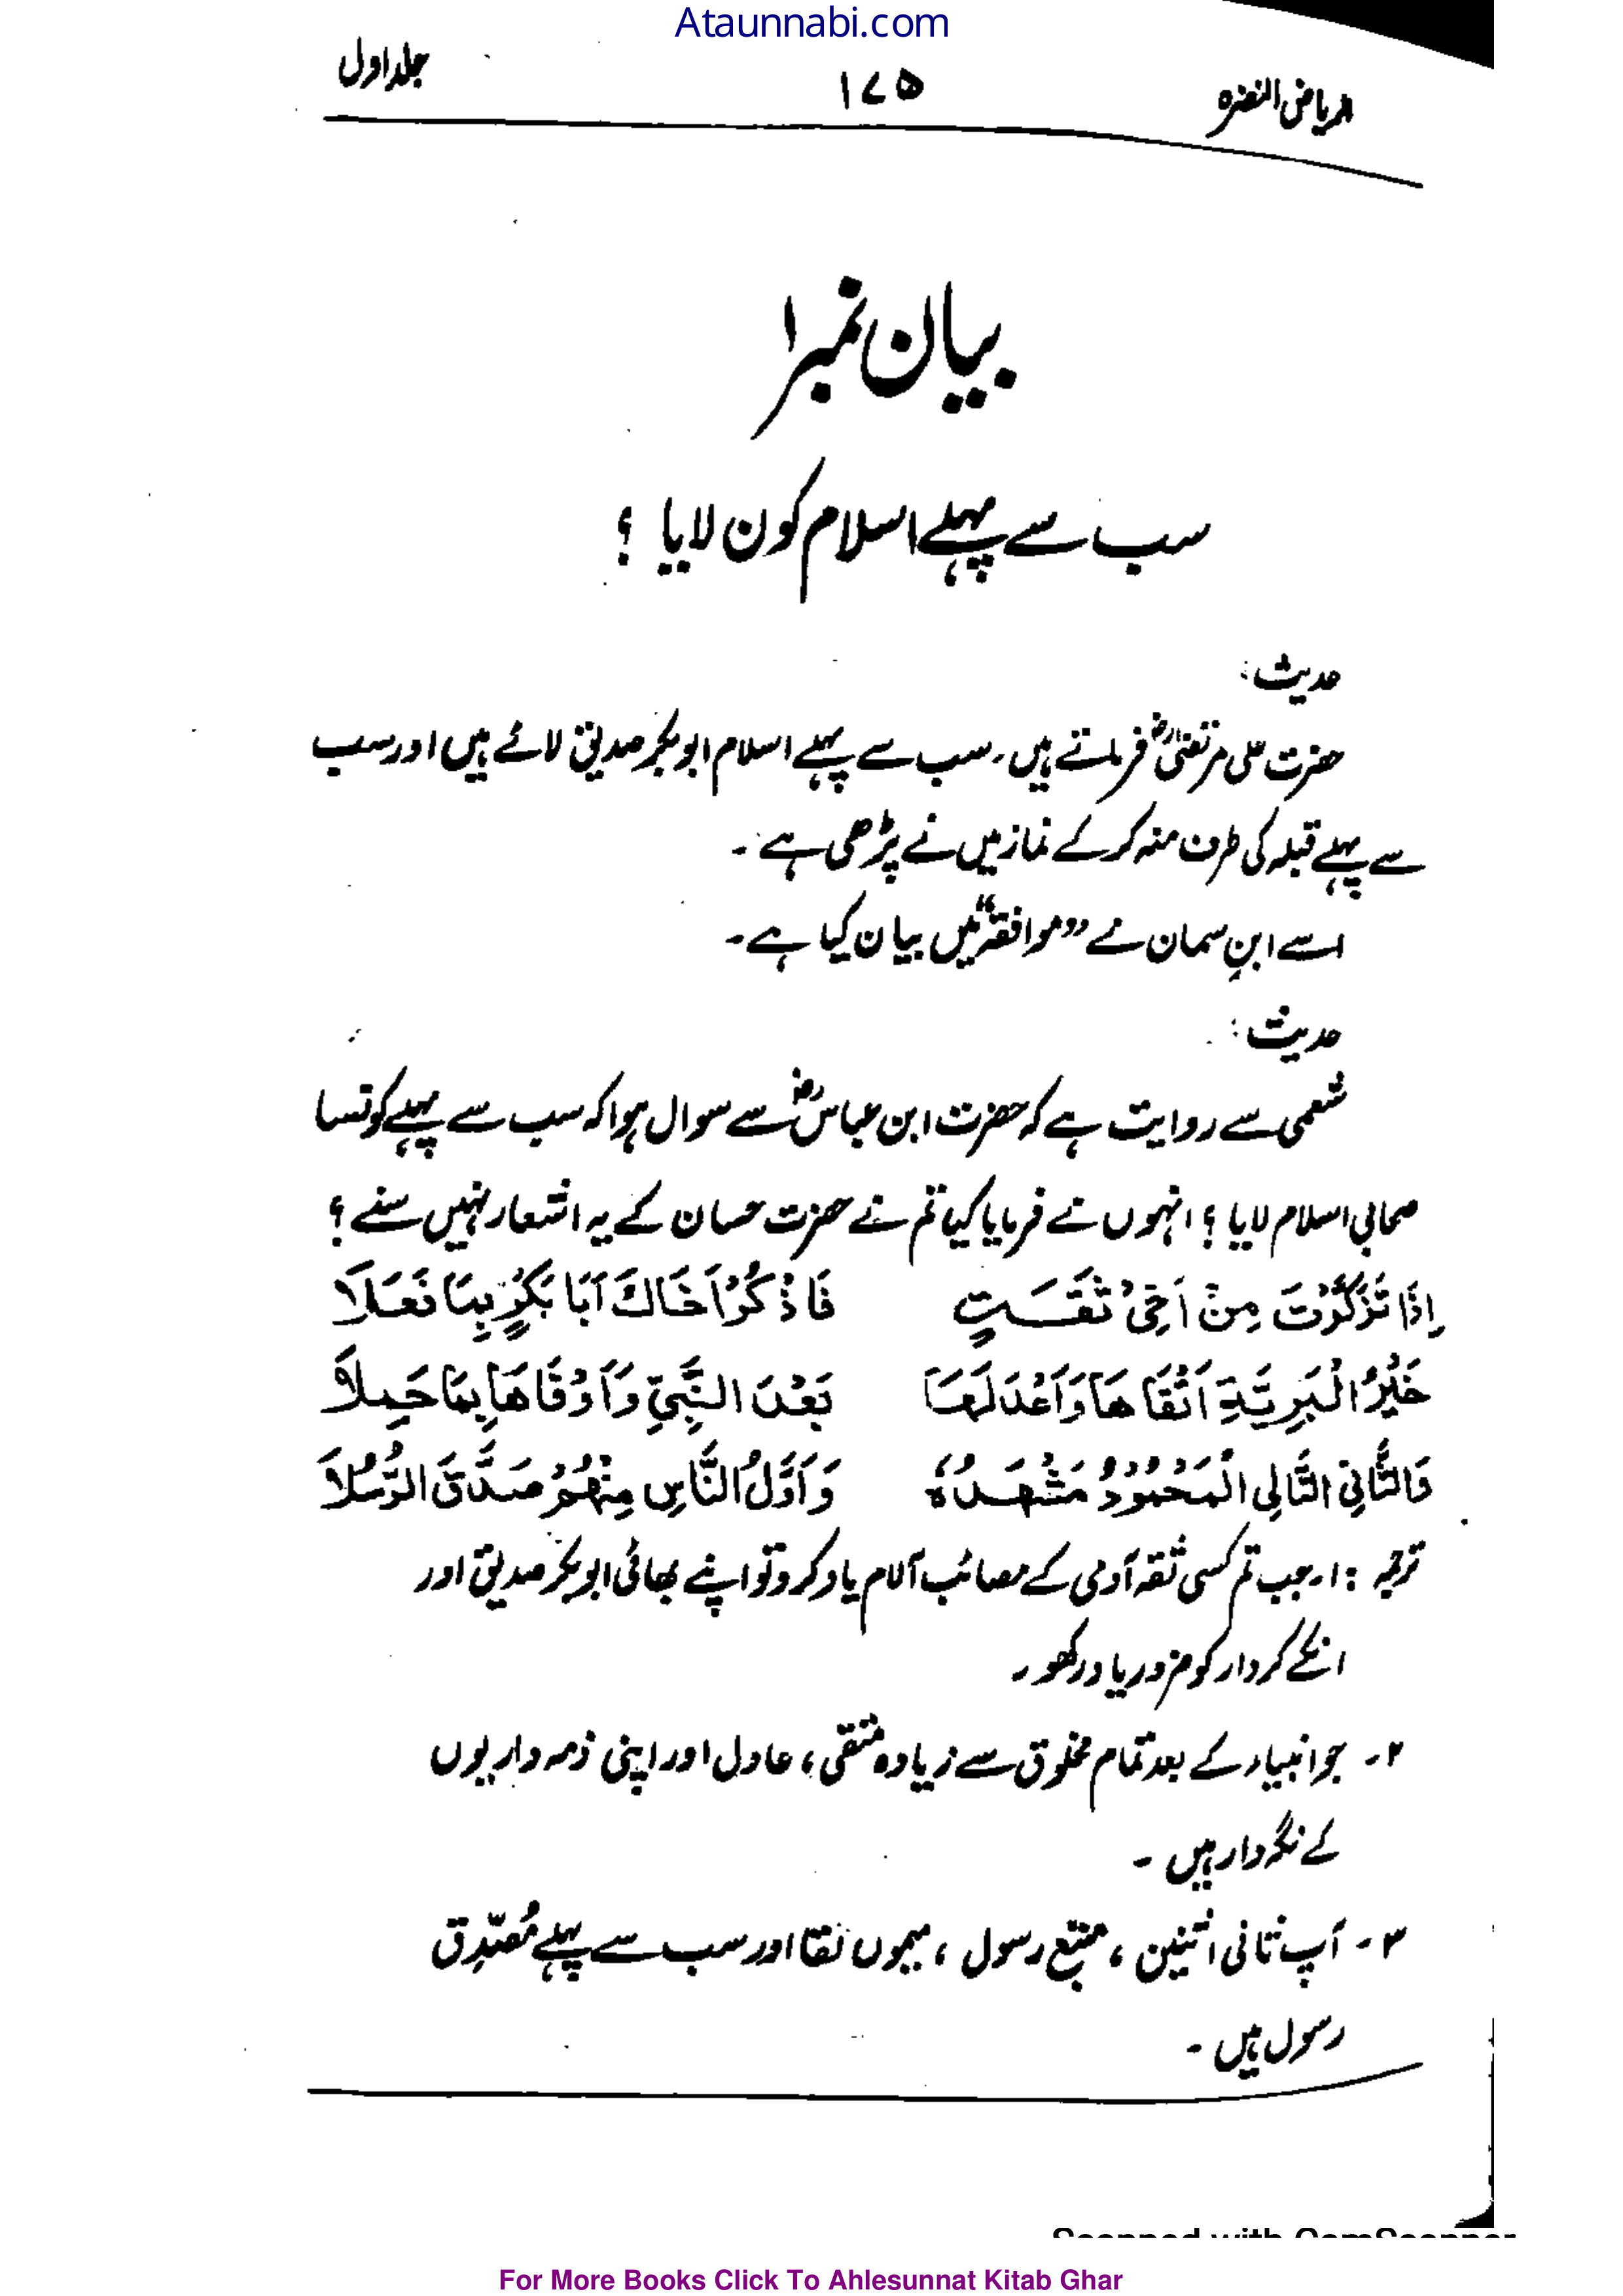 Ataunnabi.com
الریاض النضرہ ۱۷۵ جلد اول
بیان نمبر ۱
سب سے پہلے اسلام کون لایا ؟
حدیث:
حضرت علی مرتضیٰؓ فرماتے ہیں۔ سب سے پہلے اسلام ابوبکر صدیق لائے ہیں اور سب
سے پہلے قبلہ کی طرف منہ کرکے نماز میں نے پڑھی ہے ۔
اسے ابنِ سمان نے ”موافقہ“ میں بیان کیا ہے۔
حدیث:
شعبی سے روایت ہے کہ حضرت ابن عباسؓ سے سوال ہوا کہ سب سے پہلے کونسا
صحابی اسلام لایا ؟ انہوں نے فرمایا کیا تم نے حضرت حسان کے یہ اشعار نہیں سنے ؟
اِذَا تَذَكَّرْتَ مِنْ اَخِیْ ثَقَسَتٍ فَاذْكُرْ اَخَاكَ اَبَا بَكْرٍ بِمَا فَعَلَا
خَيْرُ الْبَرِيَّةِ اَتْقَاهَا وَاَعْدَلَهَا بَعْدَ النَّبِيِّ وَاَوْفَاهَا بِمَا حَمِلَا
وَالثَّانِيَ التَّالِي الْمَحْمُوْدُ مَشْهَدُهٗ وَاَوَّلُ النَّاسِ مِنْهُمْ صَدَّقَ الرُّسُلَا
ترجمہ : ۱۔ جب تم کسی ثقہ آدمی کے مصائب آلام یاد کرو تو اپنے بھائی ابوبکر صدیق اور
انکے کردار کو ضرور یاد رکھو ۔
۲۔ جو انبیاء کے بعد تمام مخلوق سے زیادہ متقی ، عادل اور اپنی ذمہ داریوں
کے نگہدار ہیں ۔
۳۔ آپ ثانی اثنین ، متبع رسول ، میموں لقا اور سب سے پہلے مُصَدِّق
رسول ہیں ۔
Scanned with CamScanner
For More Books Click To Ahlesunnat Kitab Ghar